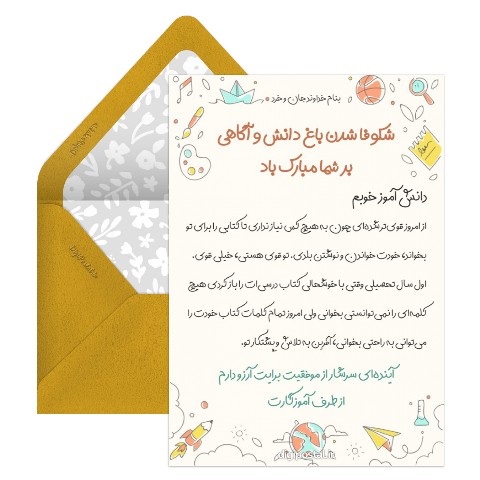 بنام خداوند جان و خرد
شکوفا شدن باغ دانش و آگاهی
بر شما مبارک باد
دانش آموز خوبم
از امروز قوی‌تر شده‌ای چون به هیچ کس نیاز نداری تا کتابی را برای تو
بخواند، خودت خواندن و نوشتن بلدی. تو قوی هستی، خیلی قوی.
اول سال تحصیلی وقتی با خوشحالی کتاب درسی‌ات را باز کردی هیچ
کلمه‌ای را نمی‌توانستی بخوانی ولی امروز تمام کلمات کتاب خودت را
می‌توانی به راحتی بخوانی، آفرین به تلاش و پشتکار تو.
آینده‌ای سرشار از موفقیت برایت آرزو دارم
از طرف آموزگارت
digipostal.ir